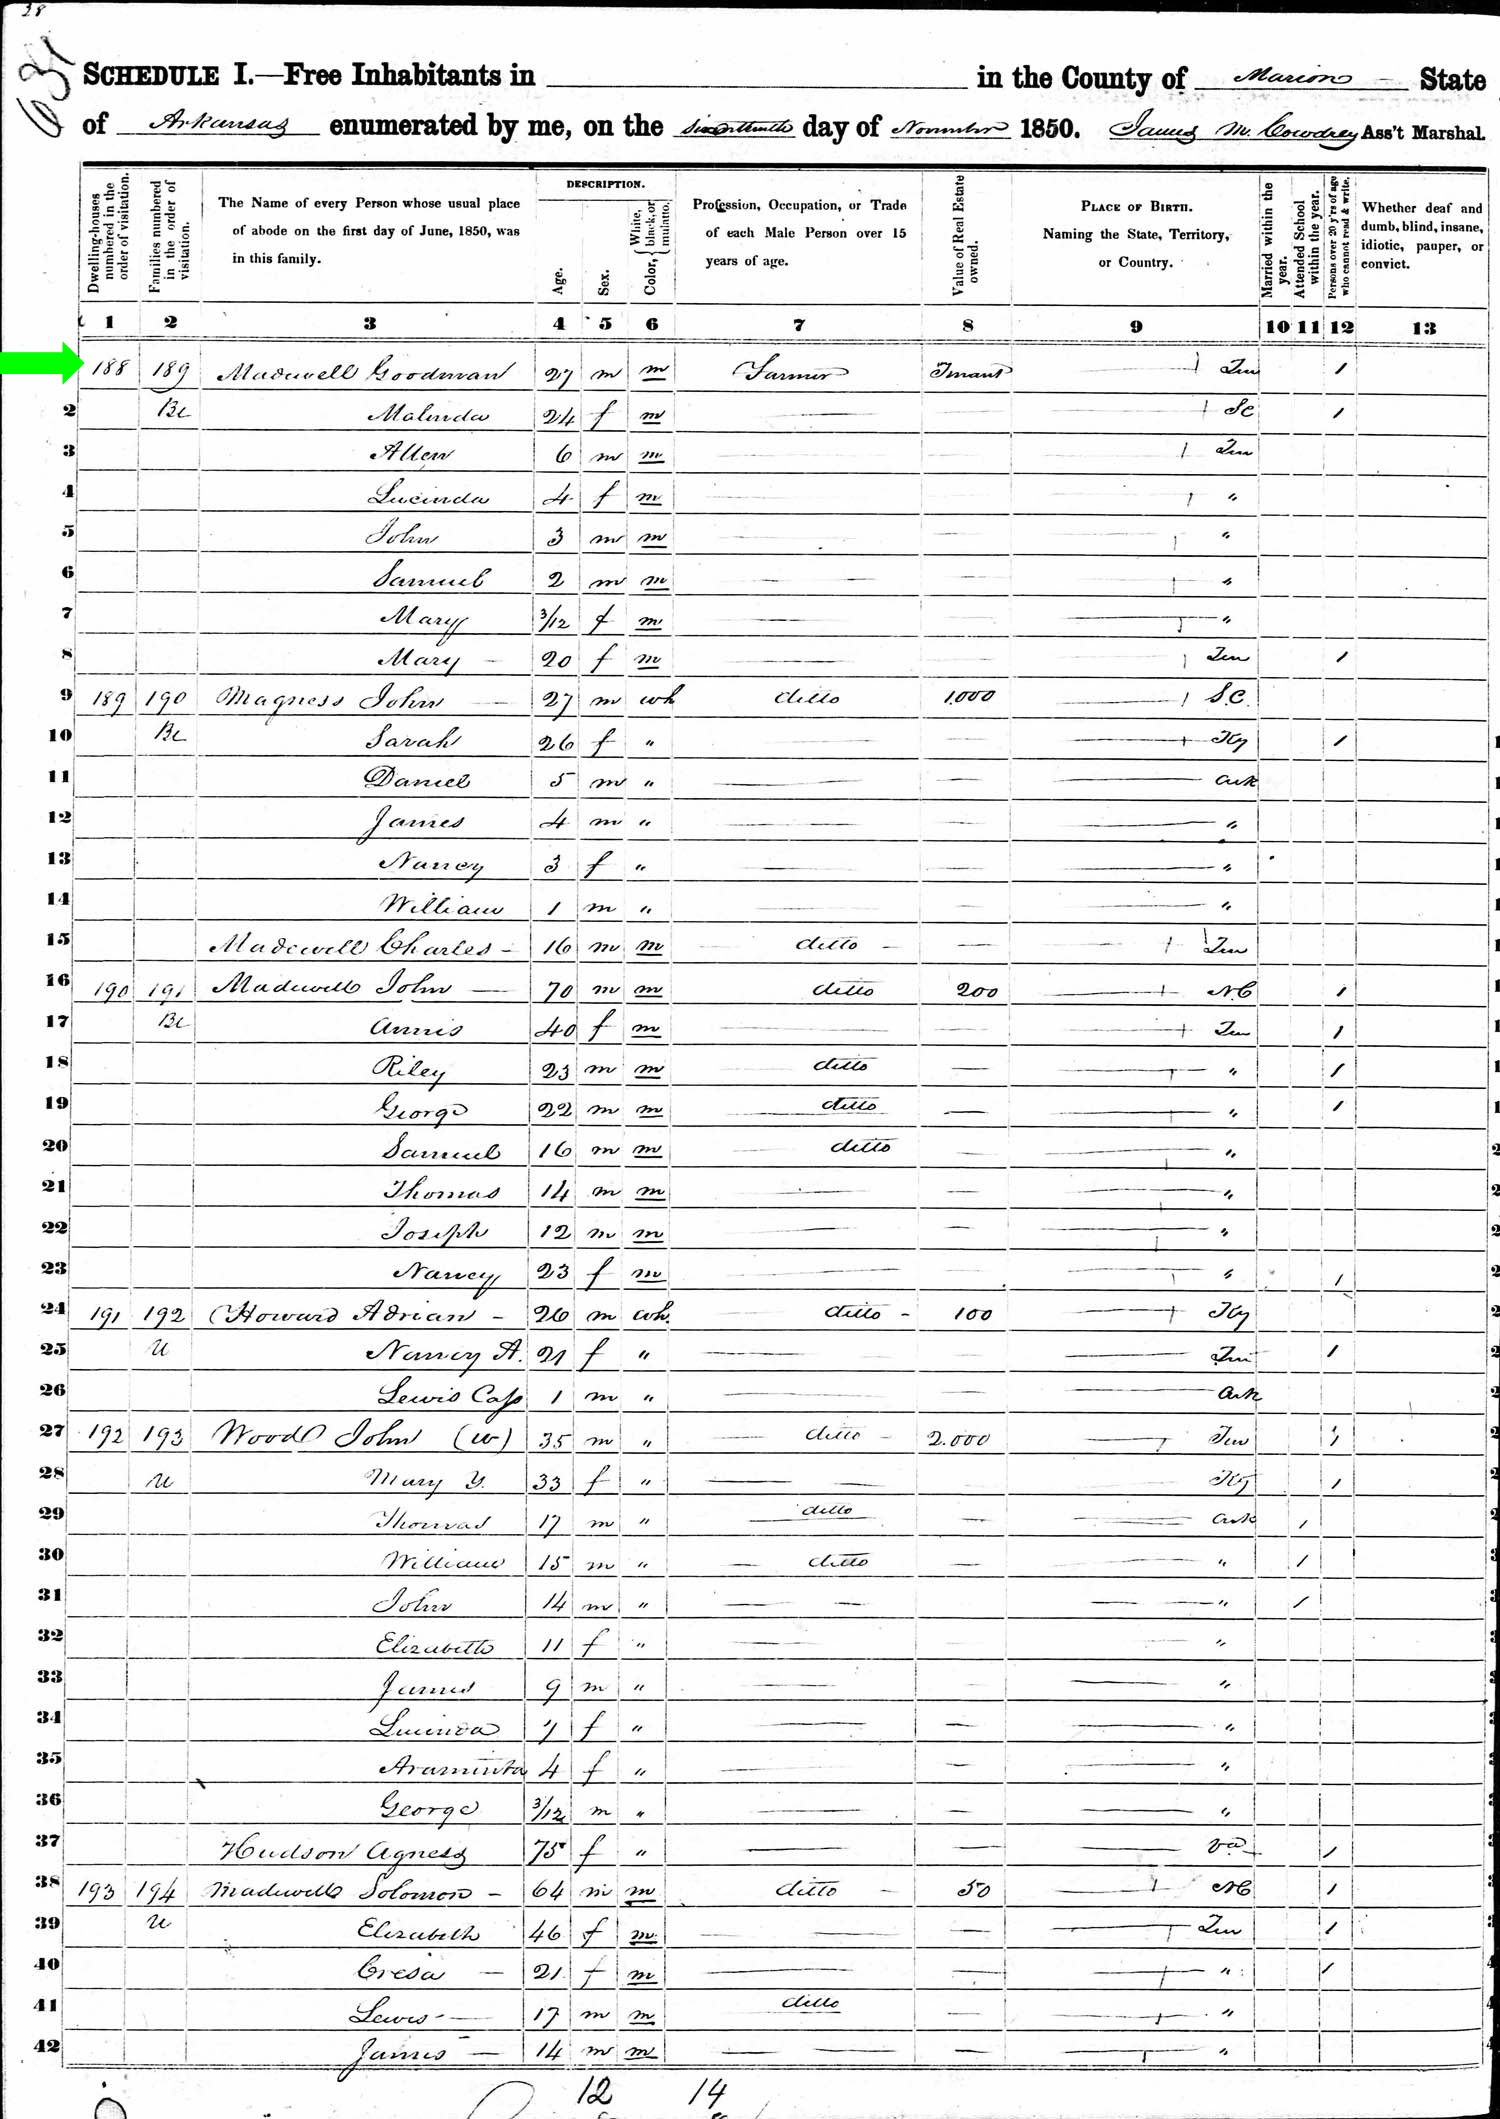 28
634
SCHEDULE I.—Free Inhabitants in in the County of Marion State
of Arkansas enumerated by me, on the day of November 1850. James M. Cowdrey Ass't Marshal.
Dwelling-houses numbered in the order of visitation.
Families numbered in the order of visitation.
The Name of every Person whose usual place of abode on the first day of June, 1850, was in this family.
DESCRIPTION.
Age.
Sex.
Color, { White, black, or mulatto.
Profession, Occupation, or Trade of each Male Person over 15 years of age.
Value of Real Estate owned.
PLACE OF BIRTH. Naming the State, Territory, or Country.
Married within the year.
Attended School within the year.
Persons over 20 y'rs of age who cannot read & write.
Whether deaf and dumb, blind, insane, idiotic, pauper, or convict.
1 2 3 4 5 6 7 8 9 10 11 12 13
188 189 Madewell Goodman 27 m m Farmer Tenant Ten /
2 Be Malinda 24 f m SC /
3 Allen 6 m m Ten
4 Lucinda 4 f m "
5 John 3 m m "
6 Samuel 2 m m "
7 Mary 3/12 f m "
8 Mary 20 f m Ten /
9 189 190 Magness John 27 m wh ditto 1.000 S.C.
10 Be Sarah 26 f " Ky /
11 Daniel 5 m " Ark
12 James 4 m " "
13 Nancy 3 f " "
14 William 1 m " "
15 Madewell Charles 16 m m ditto Ten
16 190 191 Madewell John 70 m m ditto 200 N.C /
17 Be Annis 40 f m Ten /
18 Riley 23 m m ditto " /
19 George 22 m m ditto " /
20 Samuel 16 m m ditto "
21 Thomas 14 m m "
22 Joseph 12 m m "
23 Nancy 23 f m " /
24 191 192 Howard Adrian 26 m wh. ditto 100 Ky
25 u Nancy A. 21 f " Ten /
26 Lewis Cass 1 m " Ark
27 192 193 Wood John (w) 35 m " ditto 2.000 Ten /
28 u Mary Y. 33 f " Ky /
29 Thomas 17 m " ditto Ark /
30 William 15 m " ditto " /
31 John 14 m " " /
32 Elizabeth 11 f " "
33 James 9 m " "
34 Lucinda 7 f " "
35 Araminta 4 f " "
36 George 3/12 m " "
37 Hudson Agness 75 f " Va /
38 193 194 Madewell Solomon 64 m m ditto 50 NC /
39 u Elizabeth 46 f m Ten /
40 Cresa 21 f m " /
41 Lewis 17 m m ditto "
42 James 14 m m "
12 14